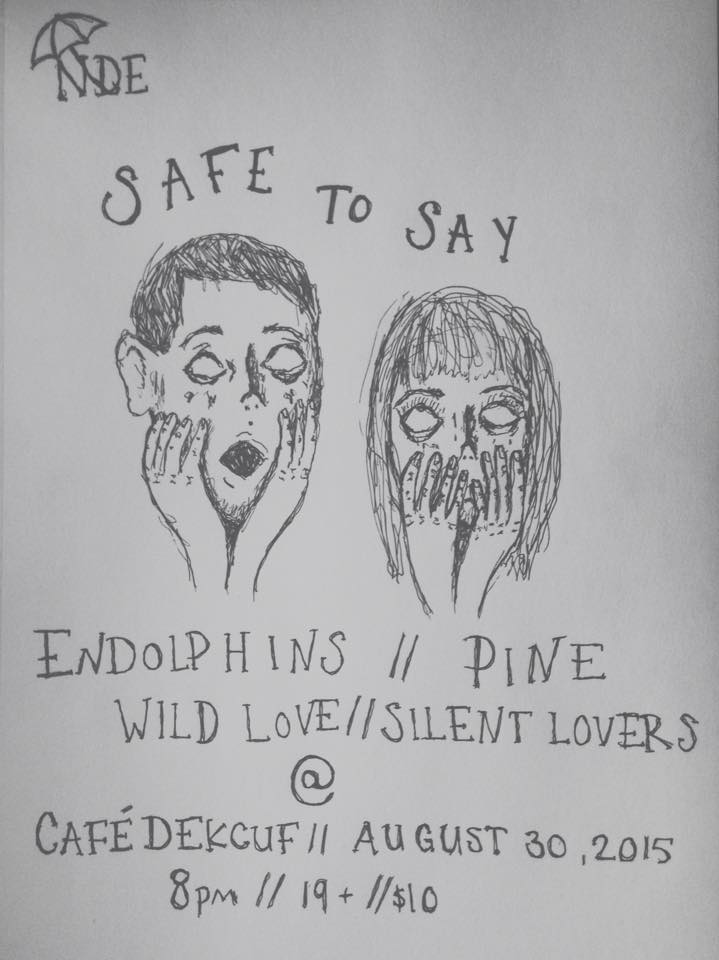 NDE
SAFE TO SAY
ENDOLPHINS // PINE
WILD LOVE//SILENT LOVERS
@
CAFÉ DEKCUF // AUGUST 30, 2015
8pm // 19+ //$10